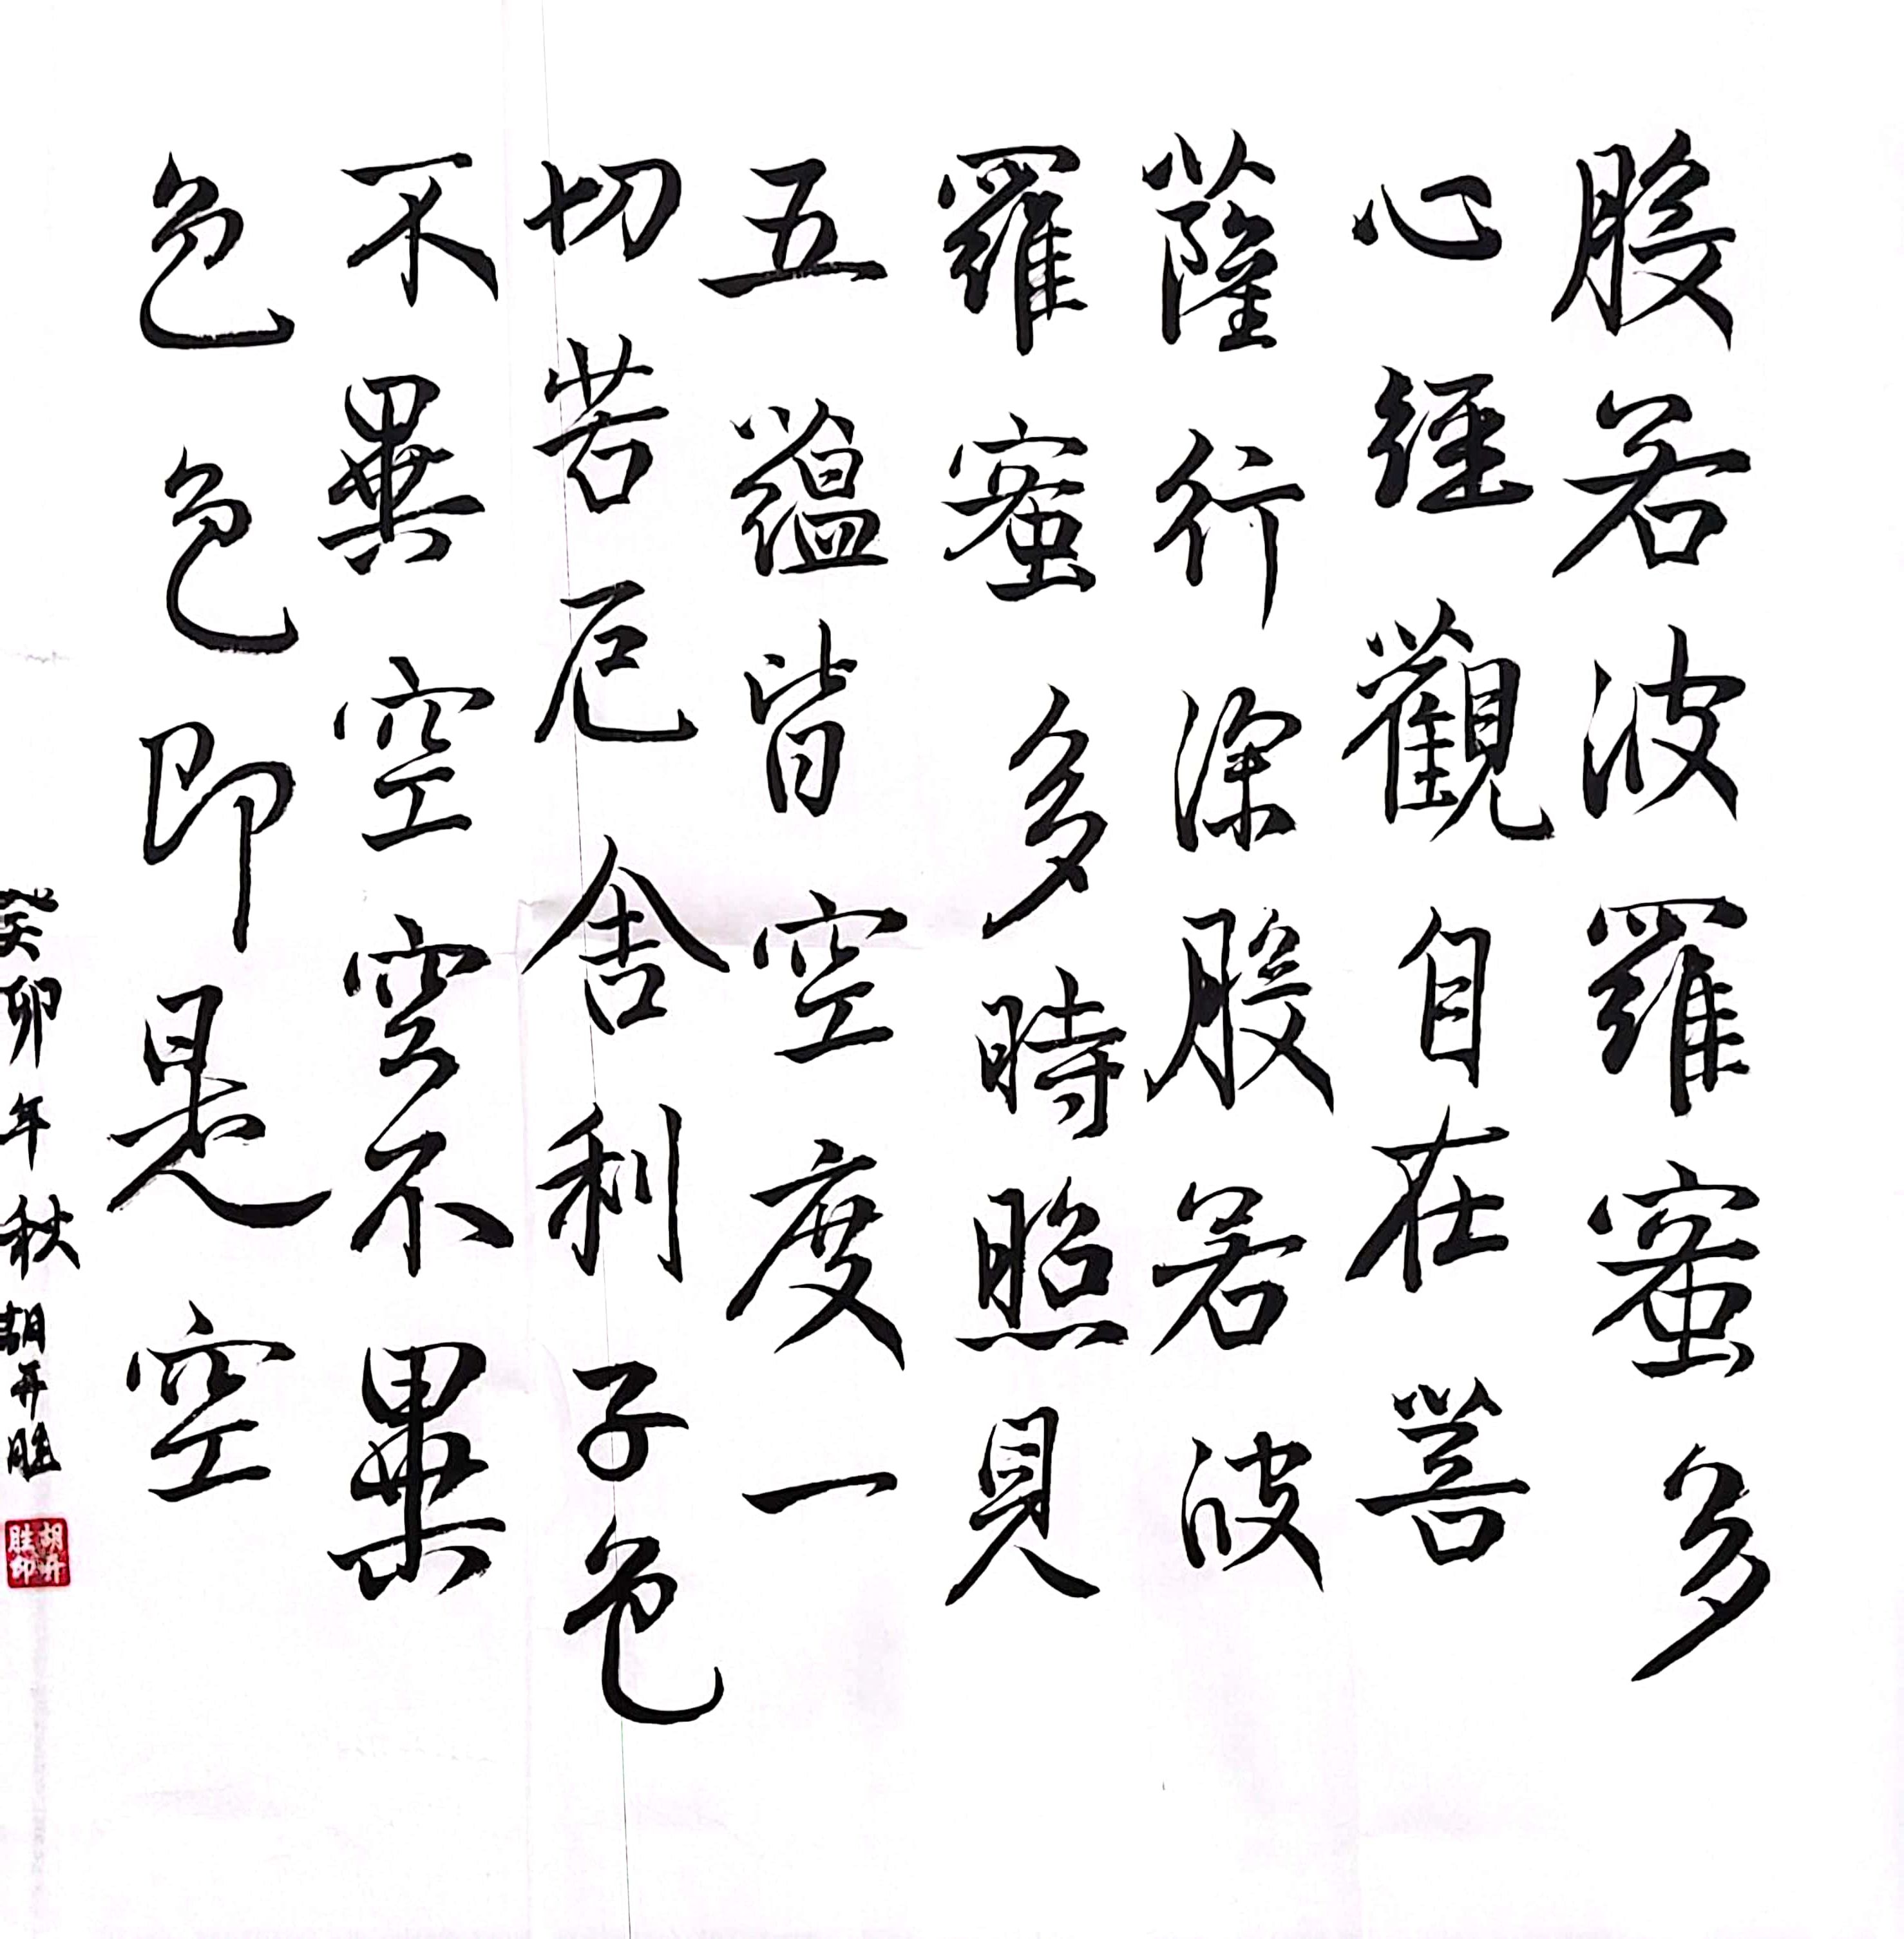 般若波羅蜜多
心經觀自在菩
薩行深般若波
羅蜜多時照見
五蘊皆空度一
切苦厄舍利子色
不異空空不異
色色即是空
癸卯年秋胡开胜
胡开
胜印